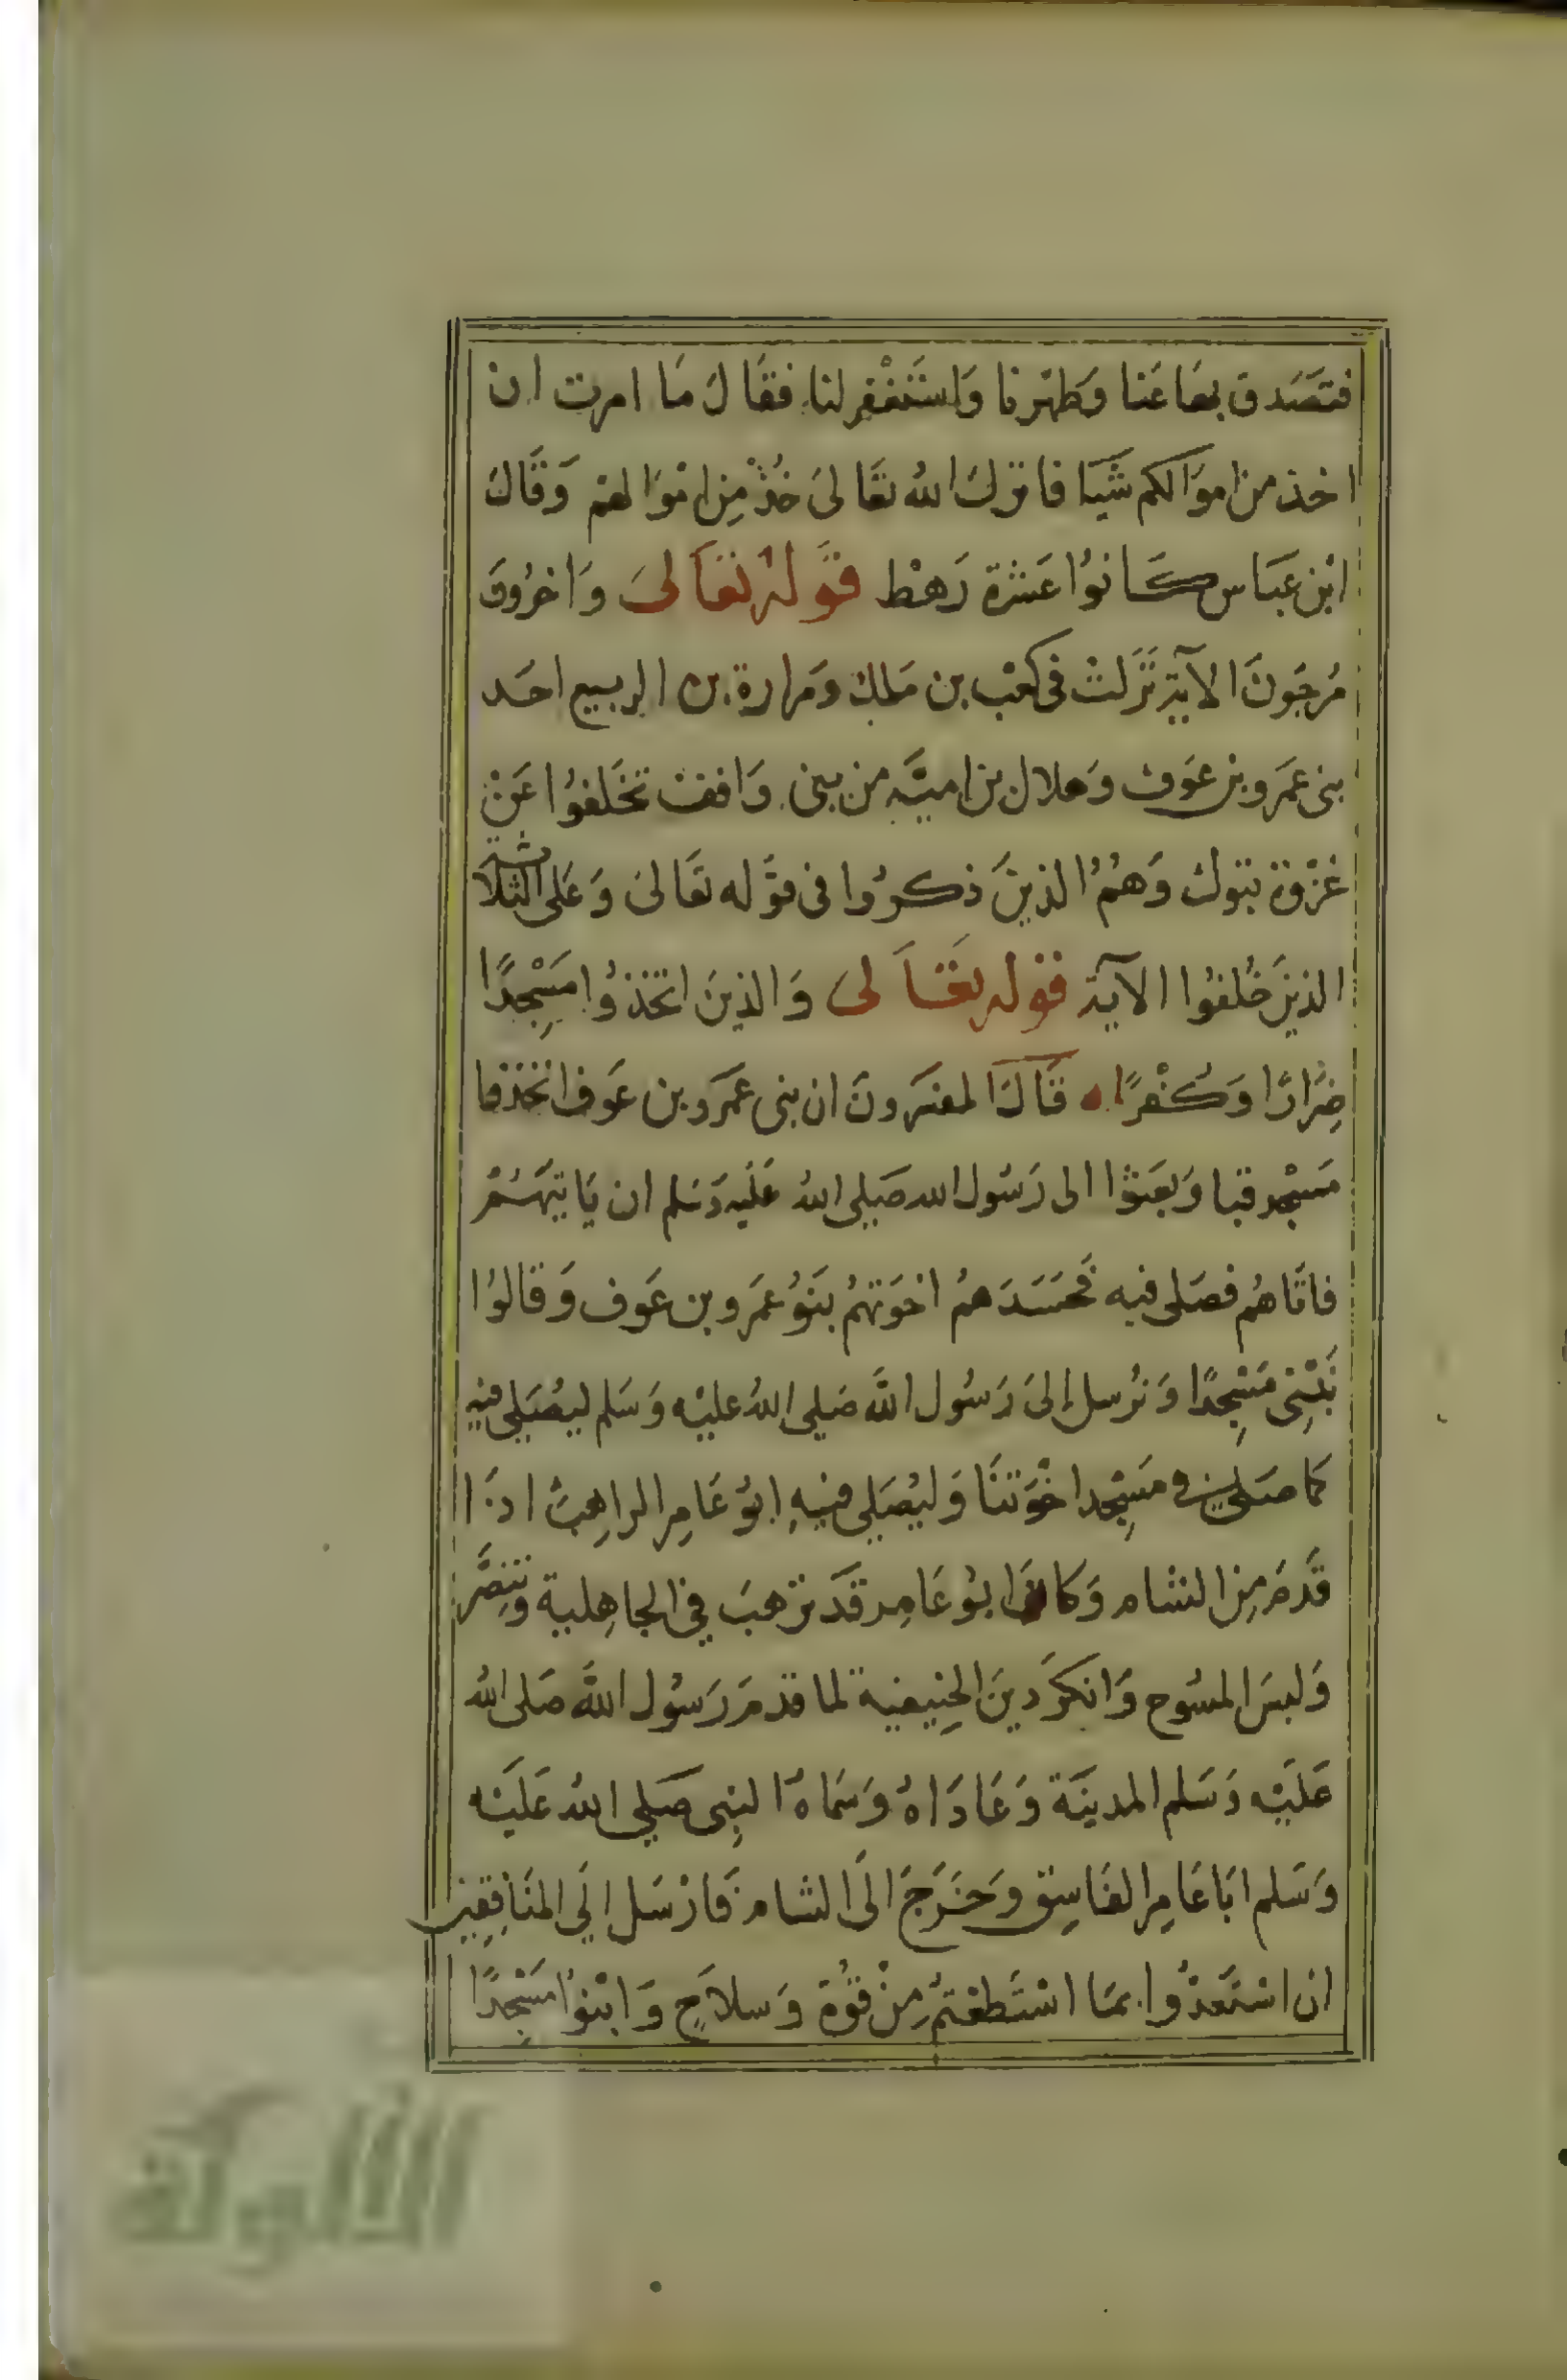 فتَصَدق بهَا عَنا وَطهّرنا وَاستَغْفِر لنا فقَالَ مَا امرت ان
اخذ من اموَالكم شَيَا فانزلَ الله تعَالىَ خُذْ مِن امْوَالهم وَقَالَ
ابْن عبَاس كَانوُا عَشرة رَهْط قوَلهُ تعَالىَ وَاخرُونَ
مُرجَونَ الآية نَزَلتْ فى كعْب بن مَلك وَمرارة بن الربيع احَد
بنى عمَرو بن عَوف وَهلال بن اميَّه من بنى وَاقف تخَلفوُا عَنْ
غزْوة تبوك وَهُمُ الذينَ ذكروُا فى قوَله تعَالىَ وَعَلى الثلاثة
الذينَ خُلفوُا الآية قوله تعَالىَ وَالذينَ اتخذوُا مَسْجِدًا
ضِرَارًا وَكُفْرًا ه قَالَ المفسَرونَ ان بنى عمَرو بن عَوف اتخذوا
مَسْجد قبا وَبعَثوا الى رَسُول الله صَلى اللهُ عَليْه وَسَلم ان يَاتيَهُمْ
فاتَاهُم فصَلى فيه فحَسَدَهمُ اخوَتهمُ بَنوُ عمَرو بن عَوف وَقالوُا
نَبْنِى مَسْجِدًا وَنرُسل إلىَ رَسُول اللهَ صَلى اللهُ عليْه وَسَلم ليصُلِى فيه
كمَا صَلى فى مَسْجِد اخْوَتنَا وَليُصَلِى فيهِ ابوُ عَامِر الراهِبُ اذَا
قَدمَ مِن الشام وَكانَ ابوُ عَامِر قَد ترَهبَ فى الجاهِلية وَتنصَّر
وَلبسَ المسُوح وَانكرَ دينَ الحنِيفية لما قدمَ رَسُول اللهَ صَلى اللهُ
عَليْه وَسَلم المدينَة وَعَادَاهُ وَسَماهُ النبِى صَلى اللهُ عَليَه
وَسَلم ابَا عَامِر الفَاسِق وَخَرَجَ الَى الشام فَارْسَل الَي المنَافِقِين
ان اسْتَعدوُا بمَا اسْتَطعْتمُ مِنْ قوُة وَسلاَحٍ وَابنوُا مَسْجِدًا
الألوكة